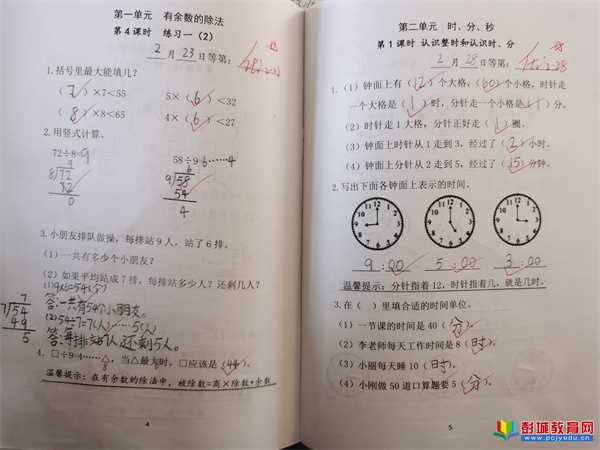 第一单元 有余数的除法
第4课时 练习一(2)
2月23日等第:
1.括号里最大能填几?
(7)×7<55 5×(6)<32
(8)×8<65 4×(6)<27
2.用竖式计算。
72÷8=9 58÷9=6……4
9
8/72
72
0
6
9/58
54
4
3.小朋友排队做操，每排站9人，站了6排。
(1)一共有多少个小朋友?
(2)如果平均站成7排，每排站多少人?还剩几人?
(1)9×6=54(个)
答:一共有54个小朋友。
(2)54÷7=7(人)……5(人)
答:每排站7人，还剩5人。
7
7/54
49
5
4.□÷9=4……△，当△最大时，□应该是(44)。
温馨提示:在有余数的除法中，被除数=商×除数+余数
4
第二单元 时、分、秒
第1课时 认识整时和认识时、分
2月28日等第:
1.(1)钟面上有(12)个大格，(60)个小格，时针走
一个大格是(1)时，分针走一个小格是(1)分。
(2)时针走1大格，分针正好走(1)圈。
(3)钟面上时针从1走到3，经过了(2)小时。
(4)钟面上分针从2走到5，经过了(15)分钟。
2.写出下面各钟面上表示的时间。
9:00 5:00 3:00
温馨提示:分针指着12，时针指着几，就是几时。
3.在( )里填合适的时间单位。
(1)一节课的时间是40(分)。
(2)李老师每天工作时间是8(时)。
(3)小丽每天睡10(时)。
(4)小刚做50道口算题要5(分)。
5
彭城教育网
www.pcjyedu.com